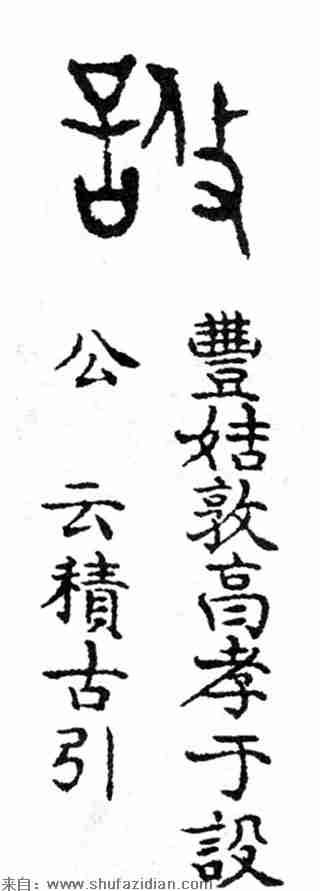 豐姞敦亯孝于設
公 云積古引
来自：www.shufazidian.com